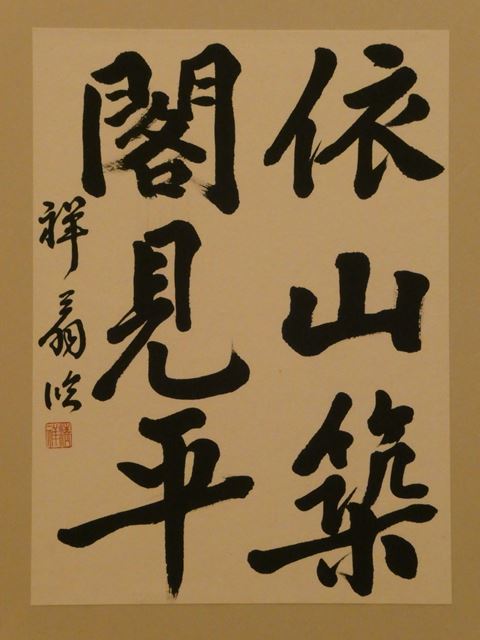 依山築
閣見平
祥翁臨